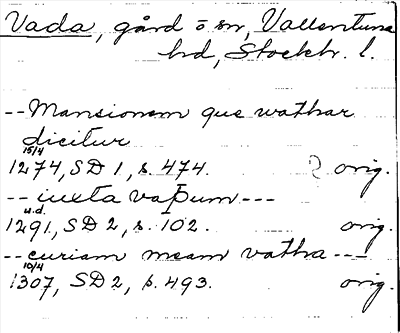 Vada, gård o sn, Vallentuna
hd, Stockh. l.
-- Mansionem que wathar
dicitur
15/4
1274, SD 1, s. 474. ? orig.
-- iuxta vaþum ---
u.d.
1291, SD 2, s. 102. orig.
-- curiam meam vatha ---
10/4
1307, SD 2, s. 493. orig.